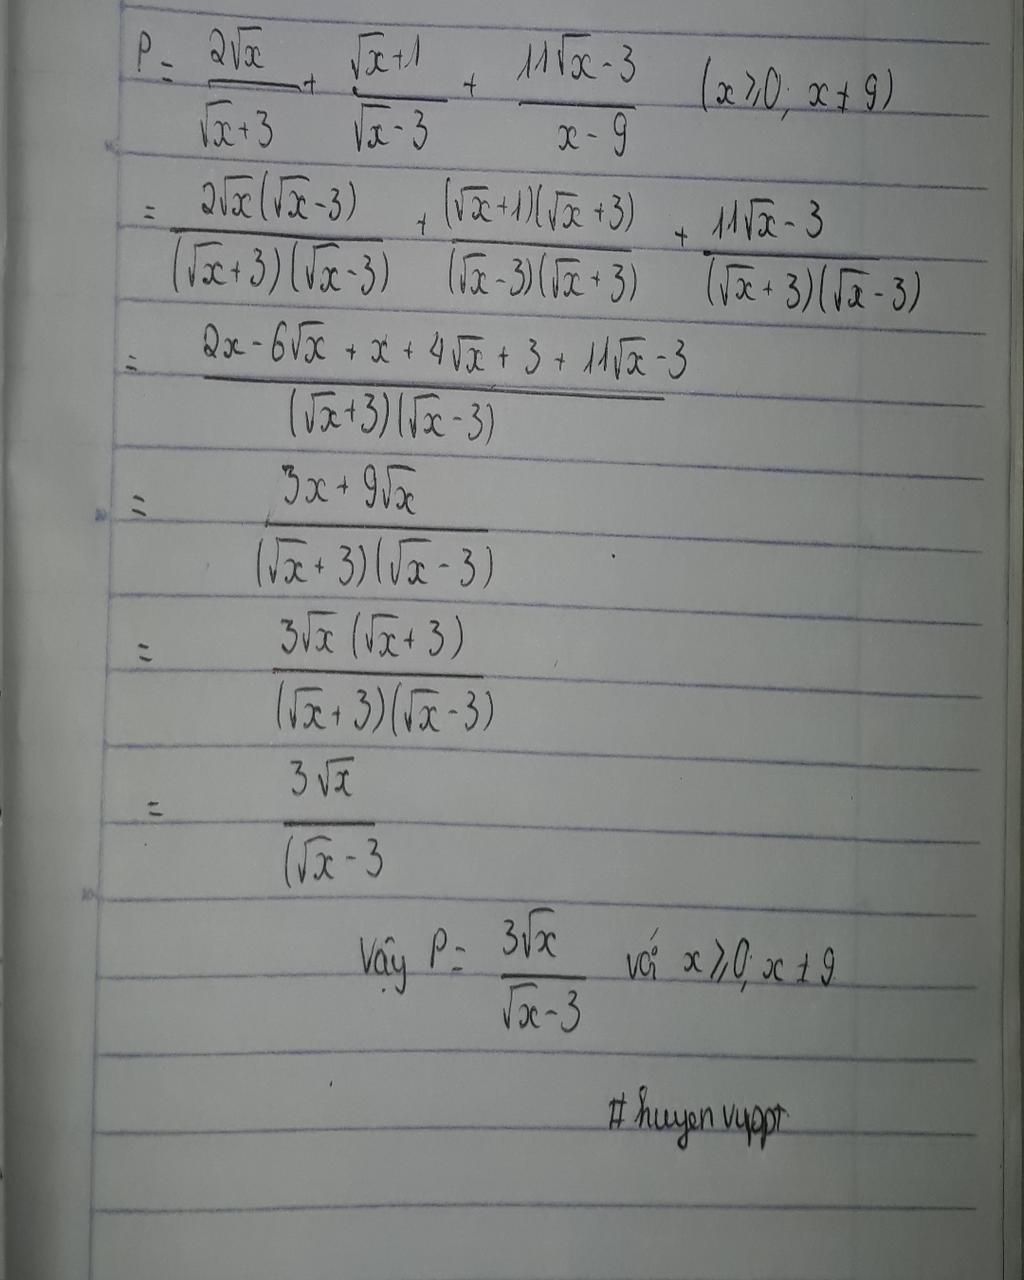 P = 2√x/(√x+3) + (√x+1)/(√x-3) + (11√x-3)/(x-9) (x⩾0; x≠9)
= 2√x(√x-3)/((√x+3)(√x-3)) + (√x+1)(√x+3)/((√x-3)(√x+3)) + (11√x-3)/((√x+3)(√x-3))
= (2x-6√x+x+4√x+3+11√x-3)/((√x+3)(√x-3))
= (3x+9√x)/((√x+3)(√x-3))
= 3√x(√x+3)/((√x+3)(√x-3))
= 3√x/(√x-3
Vậy P = 3√x/(√x-3) với x⩾0; x≠9
#huyenvyppt